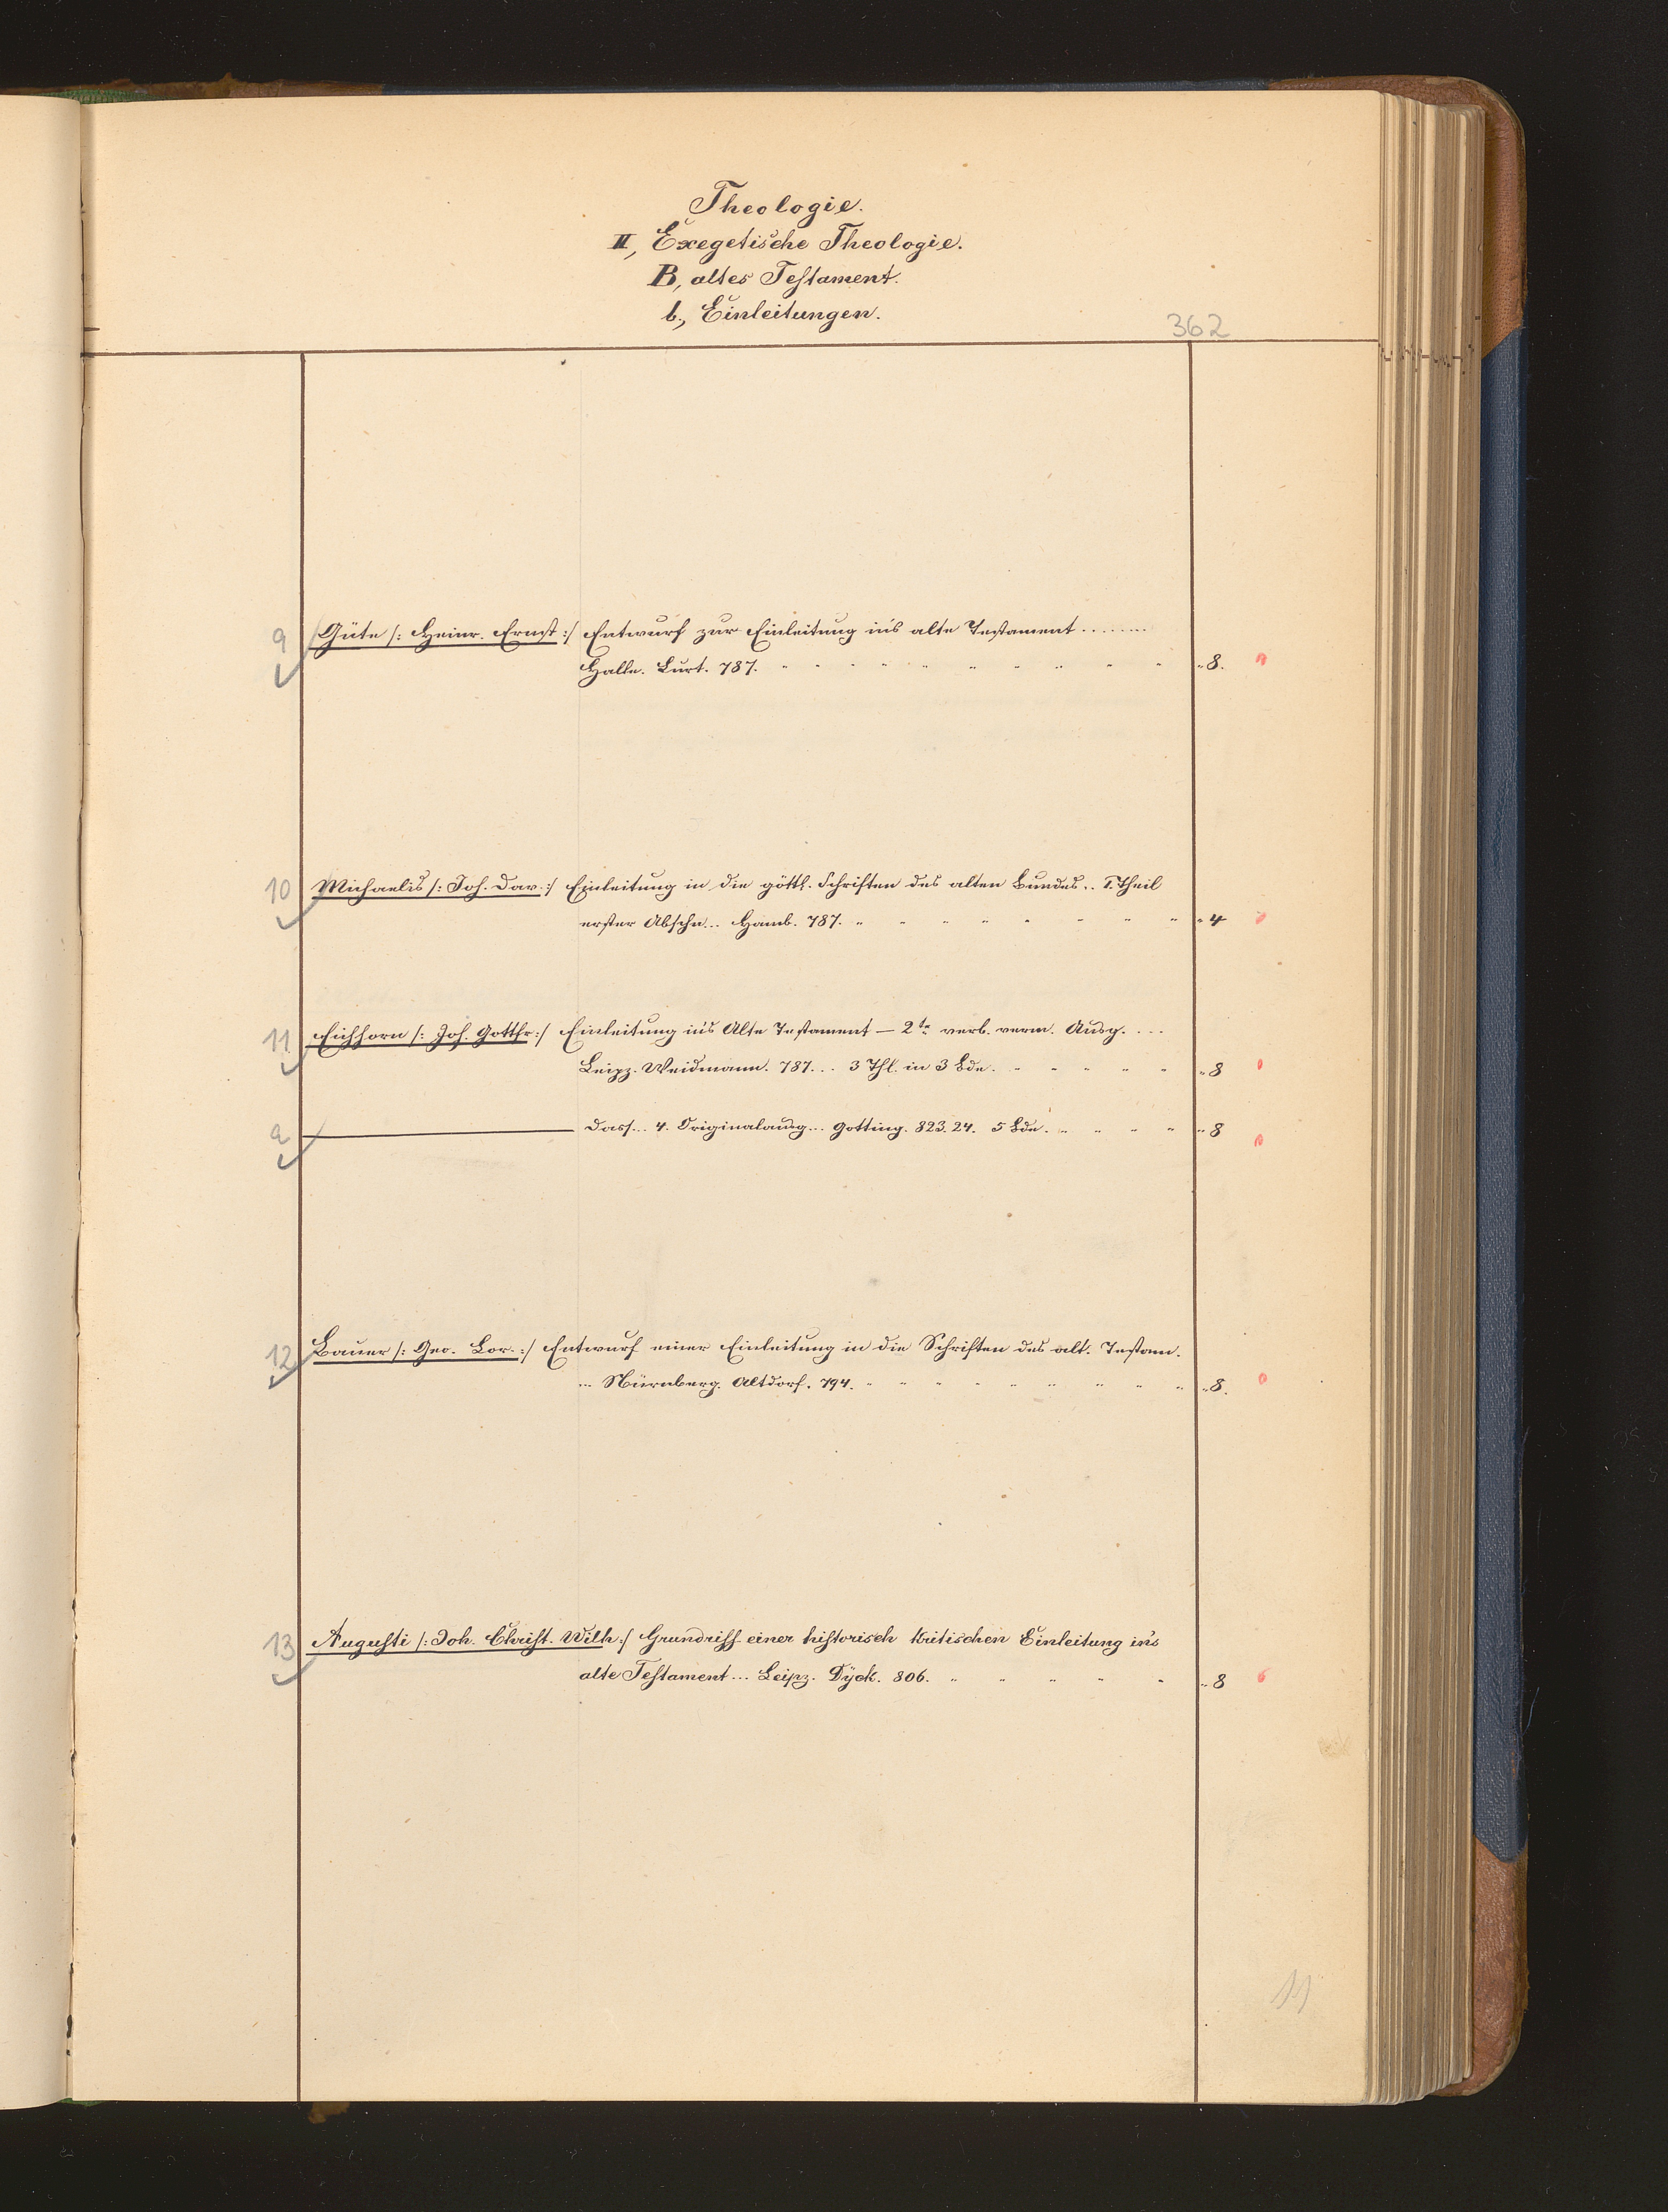 Theologie.
II, Exegetische Theologie.
B, altes Testament.
b., Einleitungen.
362
9 Güte /: Heinr. Ernst :/ Entwurf zur Einleitung in's alte Testament ........
Halle. Curt. 787. " 8.
10 Michaelis /: Joh. Dav. :/ Einleitung in die göttl. Schriften des alten Bundes .. I. Theil
erster Abschn... Hamb. 787. " 4
11 Eichhorn /: Joh. Gottfr :/ Einleitung in's Alte Testament — 2te verb. verm. Ausg. ...
Leipz. Weidmann. 787... 3 Thl. in 3 Bde. " 8
a ——— Dass... 4. Originalausg... Götting. 823. 24. 5 Bde. " 8
12 Bauer /: Geo. Lor. :/ Entwurf einer Einleitung in die Schriften des alt. Testam.
... Nürnberg. Altdorf. 794. " 8.
13 Augusti /: Joh. Christ. Wilh :/ Grundriss einer historisch kritischen Einleitung in's
alte Testament ... Leipz. Dÿck. 806. " 8